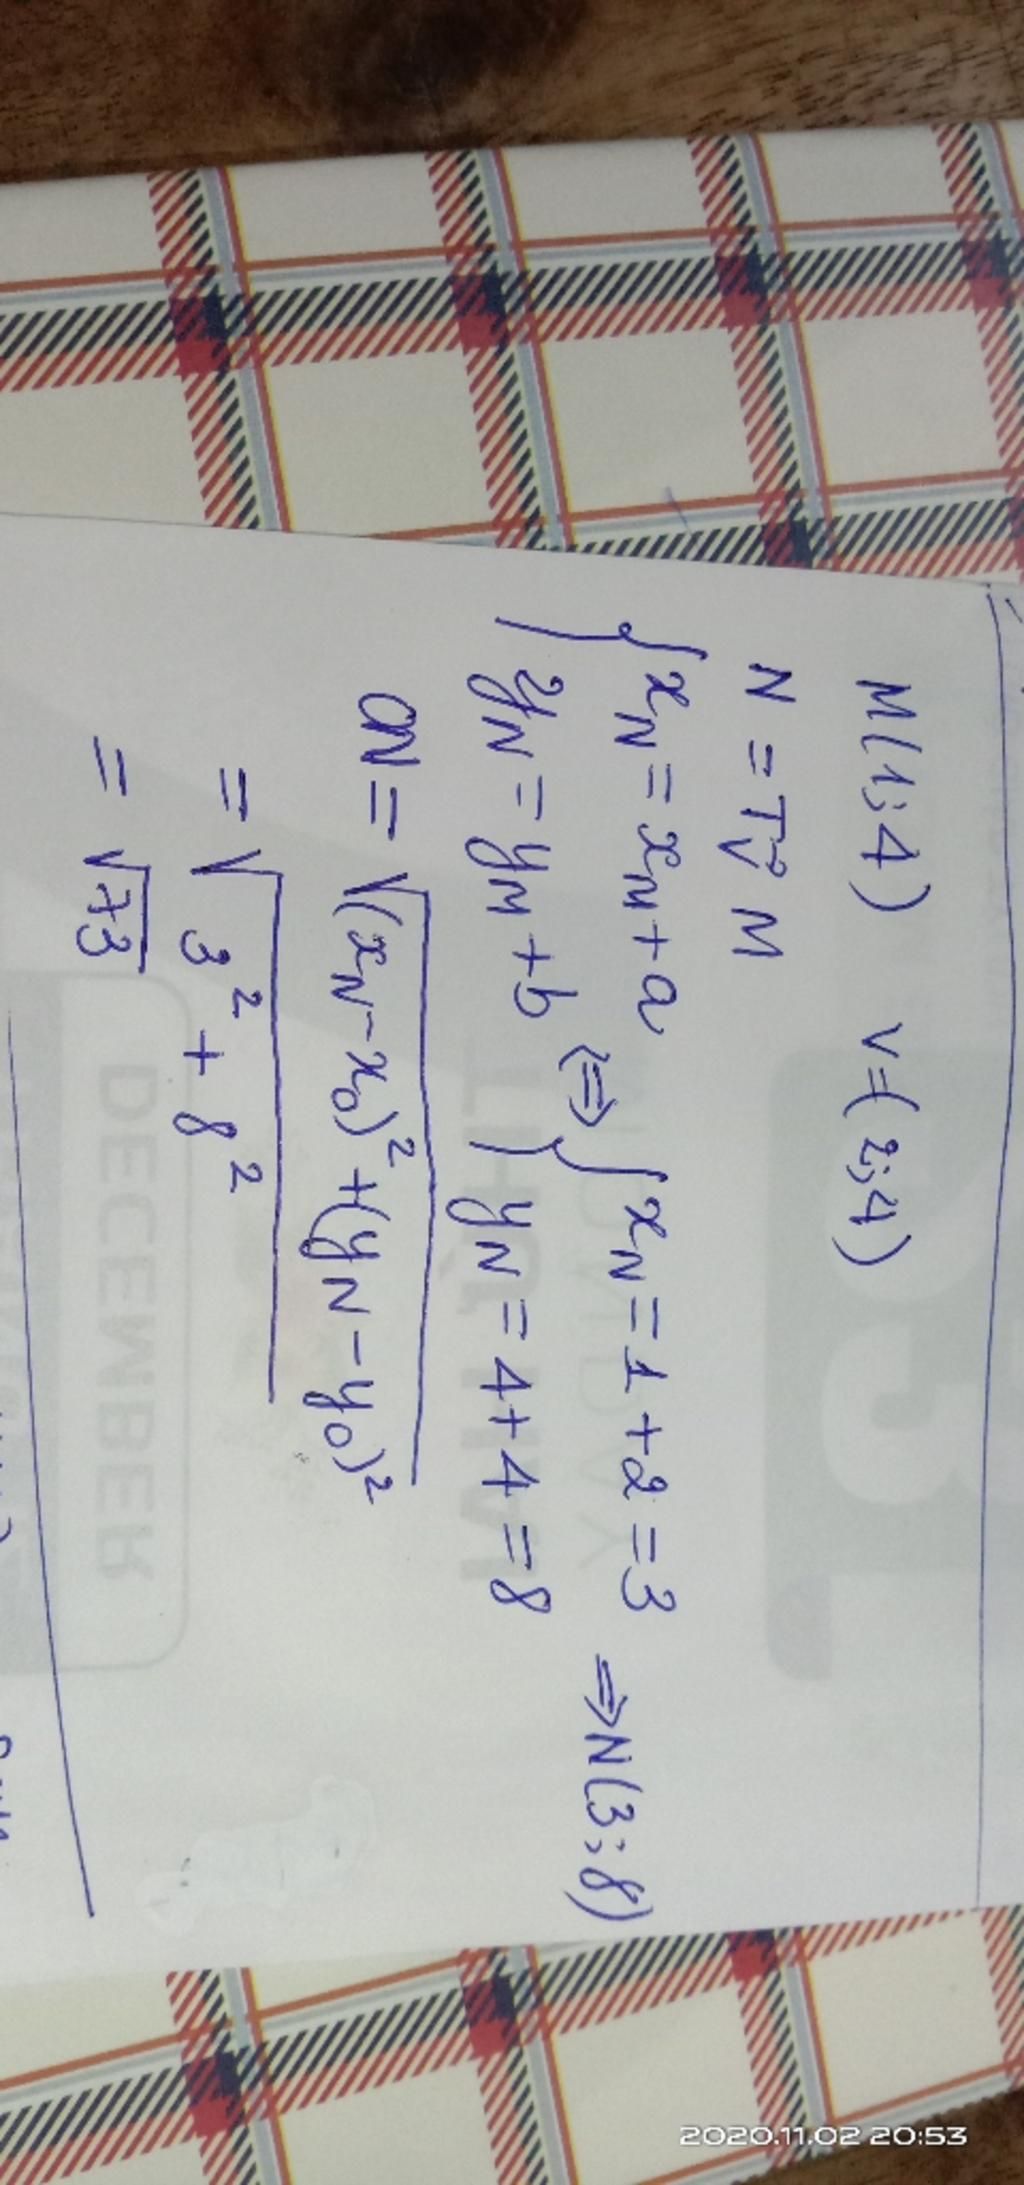 M(1;4) v=(2;4)
N = Tv⃗ M
{ xN = xM + a <=> { xN = 1 + 2 = 3 => N(3;8)
{ yN = yM + b { yN = 4 + 4 = 8
ON = √(xN - xO)² + (yN - yO)²
= √3² + 8²
= √73
DECEMBER
2020.11.02 20:53